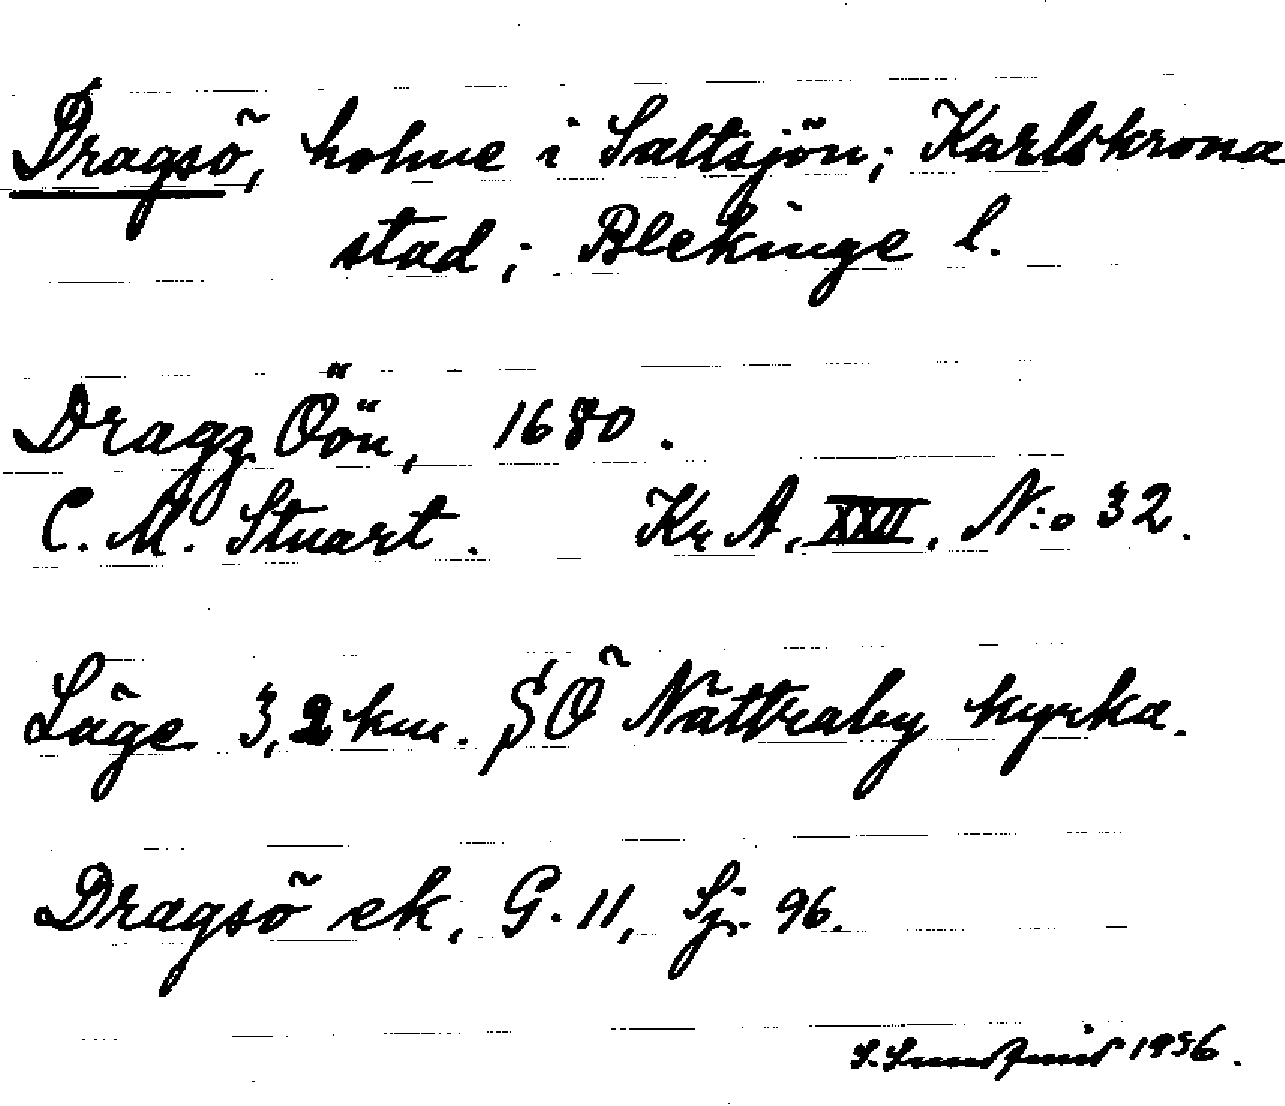 Dragsö, holme i Saltsjön; Karlskrona
stad; Blekinge l.
Dragz Öön, 1680.
C. M. Stuart. Kr A. XXII. N:o 32.
Läge 3,2 km. SÖ Nättraby kyrka.
Dragsö ek, G. 11, Sj. 96.
1956.